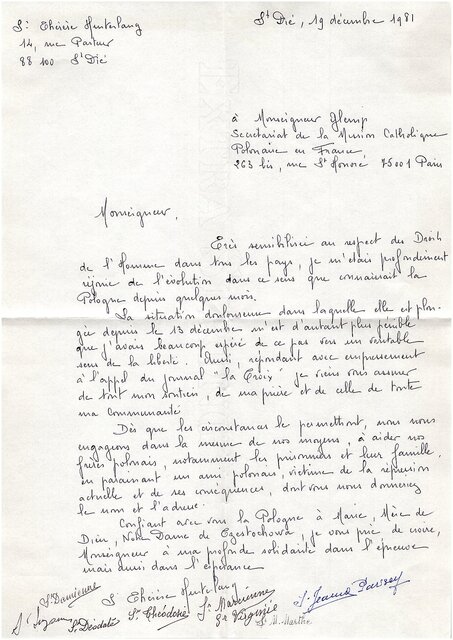 Sr Thérèse Hunterlang
12, rue Pasteur
88 100 St Dié
St Dié, 19 décembre 1981
à Monseigneur Glemp
Secrétariat de la Mission Catholique
Polonaise en France
263 bis, rue St Honoré 75001 Paris
Monseigneur,
Très sensibilisée au respect des Droits
de l'Homme dans tous les pays, je m'étais profondément
réjouie de l'évolution dans ce sens que connaissait la
Pologne depuis quelques mois.
La situation douloureuse dans laquelle elle est plon-
gée depuis le 13 décembre m'est d'autant plus pénible
que j'avais beaucoup espéré de ce pas vers un véritable
sens de la liberté. Aussi, répondant avec empressement
à l'appel du journal "la Croix" je viens vous assurer
de tout mon soutien, de ma prière et de celle de toute
ma communauté.
Dès que les circonstances le permettront, nous nous
engageons dans la mesure de nos moyens, à aider nos
frères polonais, notamment les prisonniers et leur famille.
en parrainant un ami polonais, victime de la répression
actuelle et de ses conséquences, dont vous nous donnerez
le nom et l'adresse.
Confiant avec vous la Pologne à Marie, Mère de
Dieu, Notre Dame de Czestochowa, je vous prie de croire,
Monseigneur à ma profonde solidarité dans l'épreuve
mais aussi dans l'espérance
Sr Damienne
S Thérèse
Sr Marcienne
Sr Suzanne
Sr Déodate
Sr Théodose
Sr Virginie
Sr M. Marthe
Sr Jeanne